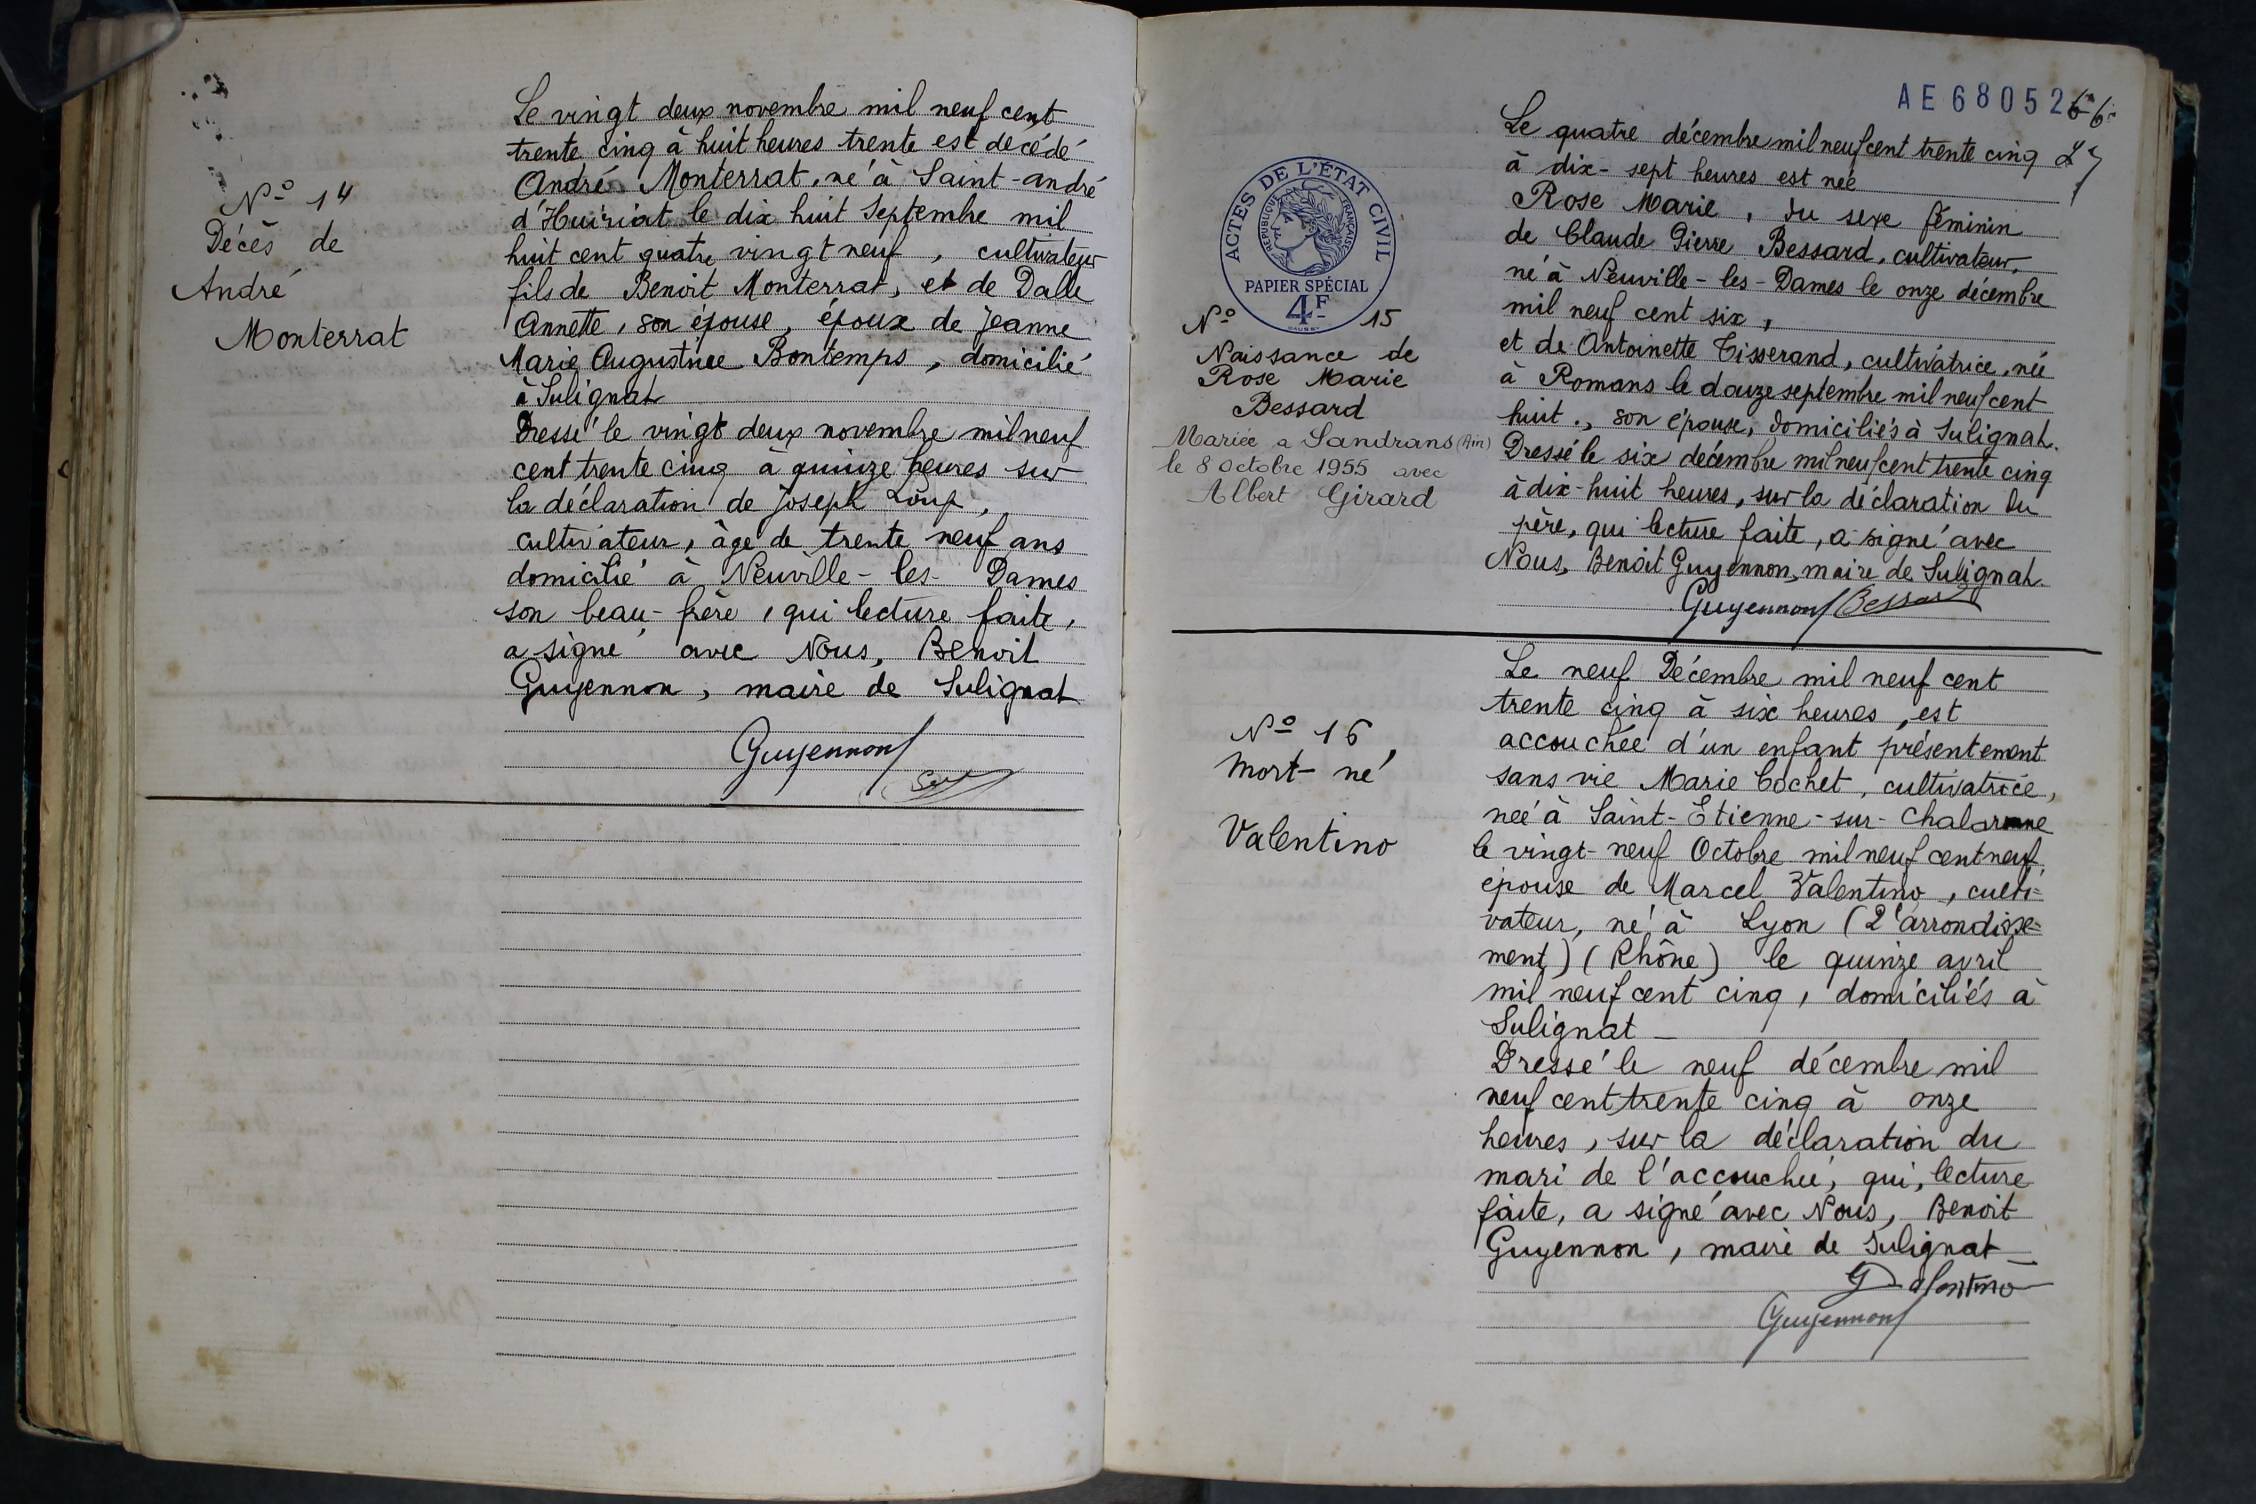 N° 14
Décès de
André
Monterrat
Le vingt deux novembre mil neuf cent
trente cinq à huit heures trente est décédé
André Monterrat, né à Saint-André
d'Huiriat le dix huit Septembre mil
huit cent quatre vingt neuf, cultivateur
fils de Benoit Monterrat, et de Dalle
Annette, son épouse, époux de Jeanne
Marie Augustine Bontemps, domicilié
à Sulignat
Dressé le vingt deux novembre mil neuf
cent trente cinq à quinze heures sur
la déclaration de Joseph Loup,
cultivateur, âgé de trente neuf ans
domicilié à Neuville-les-Dames
son beau-frère, qui lecture faite,
a signé avec Nous, Benoit
Guyennon, maire de Sulignat
Guyennon
AE68052
ACTES DE L'ÉTAT CIVIL
RÉPUBLIQUE FRANÇAISE
PAPIER SPÉCIAL
4F
N° 15
Naissance de
Rose Marie
Bessard
Mariée a Sandrans (Ain)
le 8 octobre 1955 avec
Albert Girard
Le quatre décembre mil neuf cent trente cinq
à dix-sept heures est née
Rose Marie, du sexe féminin
de Claude Pierre Bessard, cultivateur,
né à Neuville-les-Dames le onze décembre
mil neuf cent six,
et de Antoinette Tisserand, cultivatrice, née
à Romans le douze septembre mil neuf cent
huit., son épouse, domiciliés à Sulignat.
Dressé le six décembre mil neuf cent trente cinq
à dix-huit heures, sur la déclaration du
père, qui lecture faite, a signé avec
Nous, Benoit Guyennon, maire de Sulignat.
Guyennon Bessard
N° 16
Mort-né
Valentino
Le neuf Décembre mil neuf cent
trente cinq à six heures, est
accouchée d'un enfant présentement
sans vie Marie Cochet, cultivatrice,
née à Saint-Etienne-sur-Chalaronne
le vingt-neuf Octobre mil neuf cent neuf,
épouse de Marcel Valentino, culti=
vateur, né à Lyon (2e arrondisse=
ment) (Rhône) le quinze avril
mil neuf cent cinq, domiciliés à
Sulignat
Dressé le neuf décembre mil
neuf cent trente cinq à onze
heures, sur la déclaration du
mari de l'accouchée, qui, lecture
faite, a signé avec Nous, Benoit
Guyennon, maire de Sulignat
Guyennon